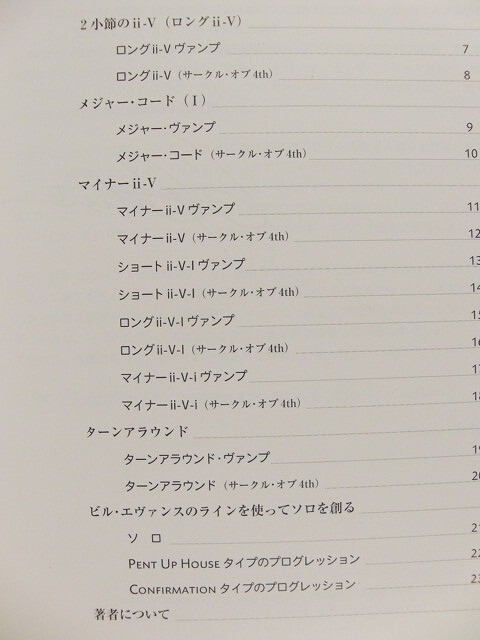 2小節のii-V（ロングii-V）
ロングii-V ヴァンプ 7
ロングii-V（サークル・オブ4th） 8
メジャー・コード（I）
メジャー・ヴァンプ 9
メジャー・コード（サークル・オブ4th） 10
マイナーii-V
マイナーii-V ヴァンプ 11
マイナーii-V（サークル・オブ4th） 12
ショート ii-V-I ヴァンプ 13
ショート ii-V-I（サークル・オブ4th） 14
ロングii-V-I ヴァンプ 15
ロングii-V-I（サークル・オブ4th） 16
マイナーii-V-i ヴァンプ 17
マイナーii-V-i（サークル・オブ4th） 18
ターンアラウンド
ターンアラウンド・ヴァンプ 19
ターンアラウンド（サークル・オブ4th） 20
ビル・エヴァンスのラインを使ってソロを創る
ソ ロ 21
PENT UP HOUSE タイプのプログレッション 22
CONFIRMATION タイプのプログレッション 23
著者について